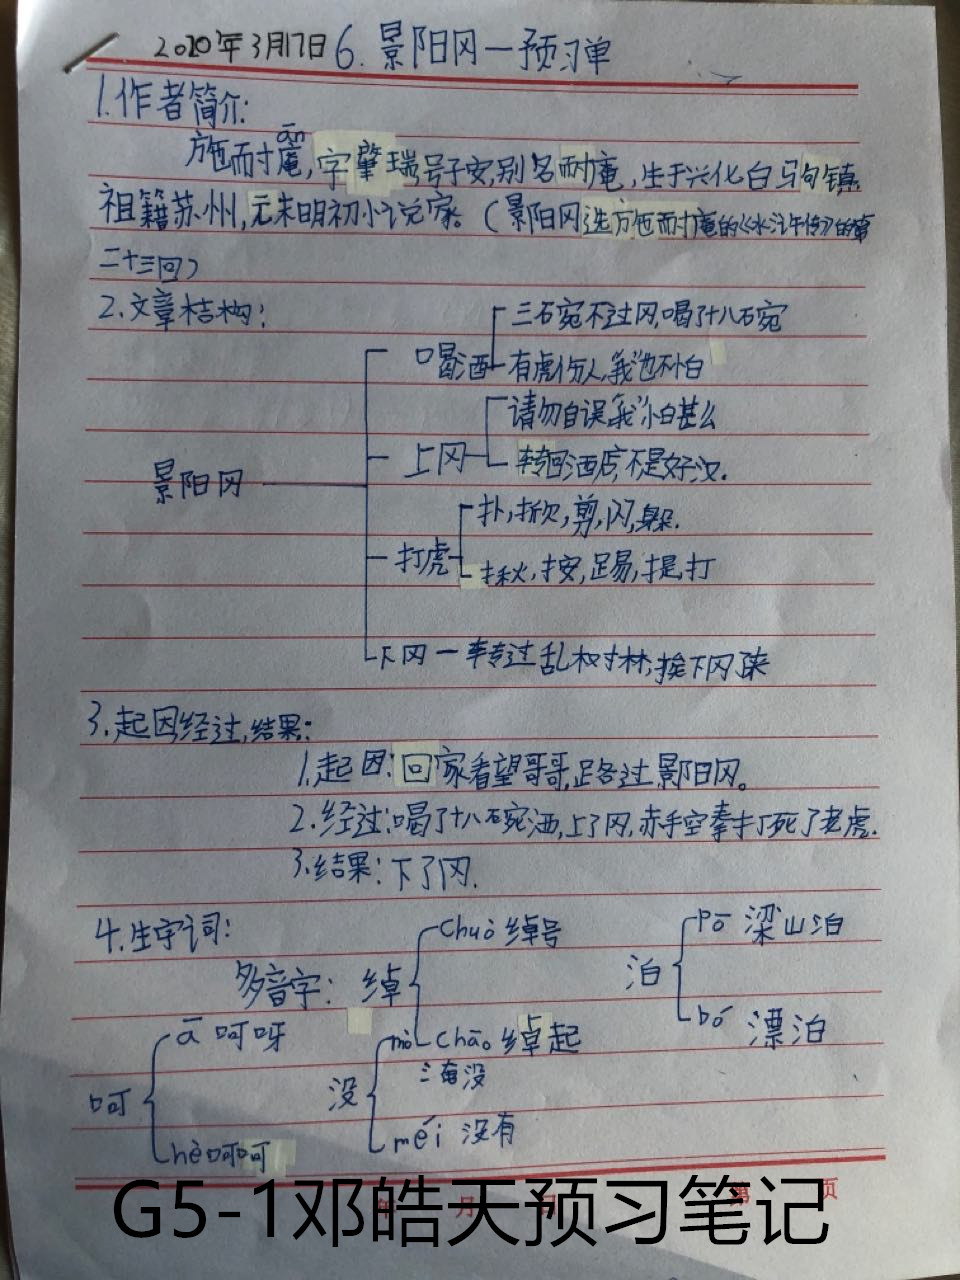 2020年3月17日 6.景阳冈—预习单
1.作者简介:
ān
施耐庵,字肇瑞号子安,别名耐庵,生于兴化白驹镇
祖籍苏州,元末明初小说家。(景阳冈选施耐庵的《水浒传》的第
二十三回)
2.文章结构:
三碗不过冈,喝了十八碗
喝酒
有虎伤人,"我"也不怕
请勿自误"我"怕甚么
上冈
转回酒店,不是好汉.
景阳冈
扑,掀,剪,闪,躲.
打虎
揪,按,踢,提,打
下冈—转过乱树林,挨下冈来
3.起因经过,结果:
1.起因:回家看望哥哥,路过景阳冈。
2.经过:喝了十八碗酒,上了冈,赤手空拳打死了老虎.
3.结果:下了冈.
4.生字词:
chuò 绰号
pō 梁山泊
多音字: 绰
泊
bó 漂泊
ā 呵呀
mò chāo 绰起
三淹没
呵 没
méi 没有
hē 呵呵
第 页
月 日
G5-1邓皓天预习笔记